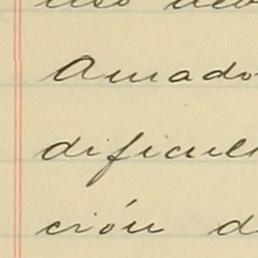 Amado
dificul
ción d